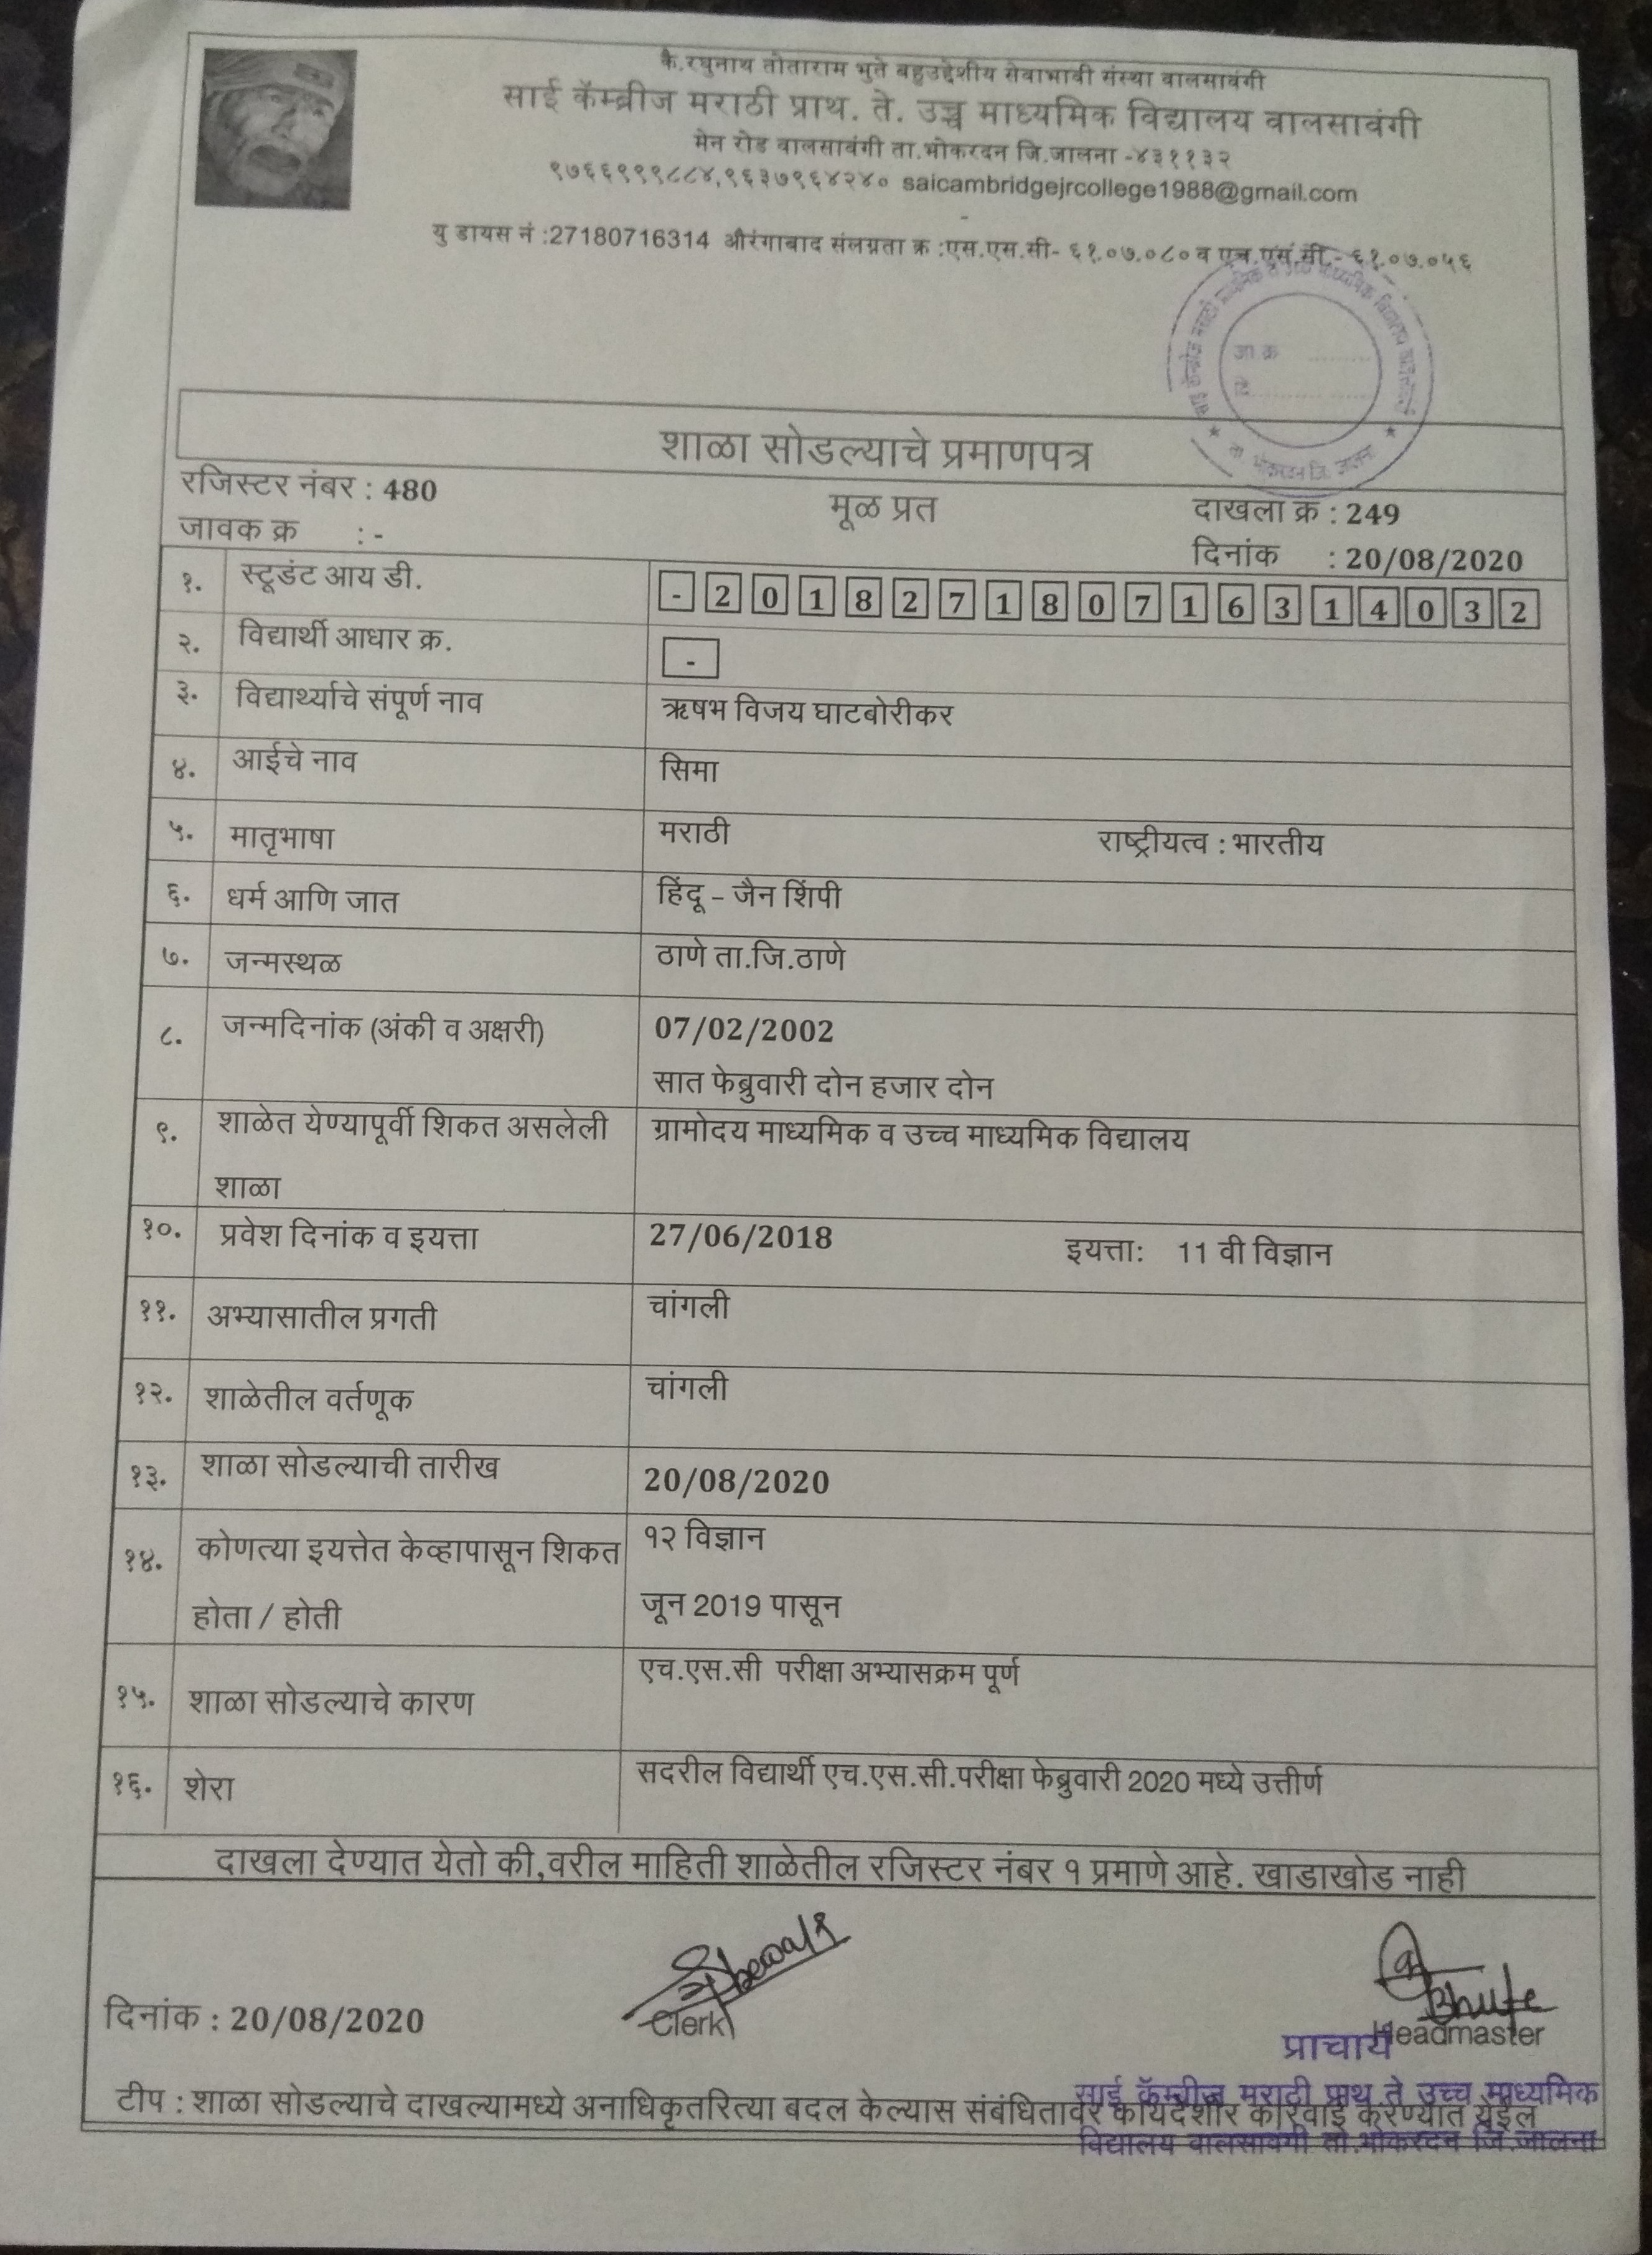 कै.रघुनाथ तोताराम भुते बहुउद्देशीय सेवाभावी संस्था वालसावंगी
साई कॅम्ब्रीज मराठी प्राथ. ते. उच्च माध्यमिक विद्यालय वालसावंगी
मेन रोड वालसावंगी ता.भोकरदन जि.जालना -४३११३२
९७६६९९९८८४,९६३७९६४२४० saicambridgejrcollege1988@gmail.com
यु डायस नं :27180716314 औरंगाबाद संलग्नता क्र :एस.एस.सी- ६१.०७.०८० व एच.एस.सी.- ६१.०७.०५६
जा क्र
शाळा सोडल्याचे प्रमाणपत्र
रजिस्टर नंबर : 480 मूळ प्रत दाखला क्र : 249
जावक क्र : - दिनांक : 20/08/2020
१. स्टूडंट आय डी. - 2 0 1 8 2 7 1 8 0 7 1 6 3 1 4 0 3 2
२. विद्यार्थी आधार क्र. -
३. विद्यार्थ्याचे संपूर्ण नाव ऋषभ विजय घाटबोरीकर
४. आईचे नाव सिमा
५. मातृभाषा मराठी राष्ट्रीयत्व : भारतीय
६. धर्म आणि जात हिंदू – जैन शिंपी
७. जन्मस्थळ ठाणे ता.जि.ठाणे
८. जन्मदिनांक (अंकी व अक्षरी) 07/02/2002
सात फेब्रुवारी दोन हजार दोन
९. शाळेत येण्यापूर्वी शिकत असलेली ग्रामोदय माध्यमिक व उच्च माध्यमिक विद्यालय
शाळा
१०. प्रवेश दिनांक व इयत्ता 27/06/2018 इयत्ताः 11 वी विज्ञान
११. अभ्यासातील प्रगती चांगली
१२. शाळेतील वर्तणूक चांगली
१३. शाळा सोडल्याची तारीख 20/08/2020
१४. कोणत्या इयत्तेत केव्हापासून शिकत १२ विज्ञान
होता / होती जून 2019 पासून
१५. शाळा सोडल्याचे कारण एच.एस.सी परीक्षा अभ्यासक्रम पूर्ण
१६. शेरा सदरील विद्यार्थी एच.एस.सी.परीक्षा फेब्रुवारी 2020 मध्ये उत्तीर्ण
दाखला देण्यात येतो की,वरील माहिती शाळेतील रजिस्टर नंबर १ प्रमाणे आहे. खाडाखोड नाही
Bhute
दिनांक : 20/08/2020 Clerk Headmaster
प्राचार्य
साई कॅम्ब्रीज मराठी प्राथ ते उच्च माध्यमिक
टीप : शाळा सोडल्याचे दाखल्यामध्ये अनाधिकृतरित्या बदल केल्यास संबंधितावर कायदेशीर कारवाई करण्यात येईल
विद्यालय वालसावंगी ता.भोकरदन जि.जालना